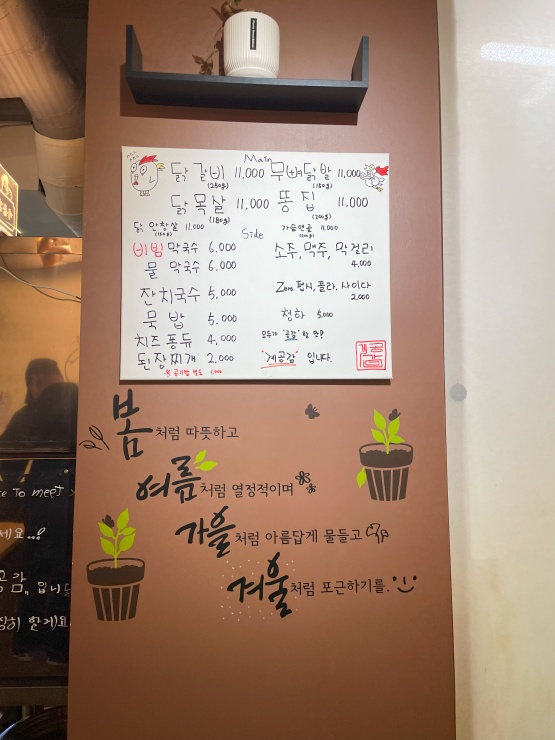 Main
닭갈비 11,000 무뼈닭발 11,000
(250g) (180g)
닭목살 11,000 똥집 11,000
(180g) (200g)
닭안창살 11,000 가슴연골 11,000
Side
비빔 막국수 6,000 소주, 맥주, 막걸리
4,000
물 막국수 6,000
잔치국수 5,000 Zero 펩시, 콜라, 사이다
2,000
묵밥 5,000 청하 5,000
치즈퐁듀 4,000 모두가 '공감'할 만한?
된장찌개 2,000 "계공감" 입니다.
공기밥 별도 1,000
계공감
봄처럼 따뜻하고
여름처럼 열정적이며
가을처럼 아름답게 물들고
겨울처럼 포근하기를.
to meet
세요..!
공감, 입니다
히 할게요